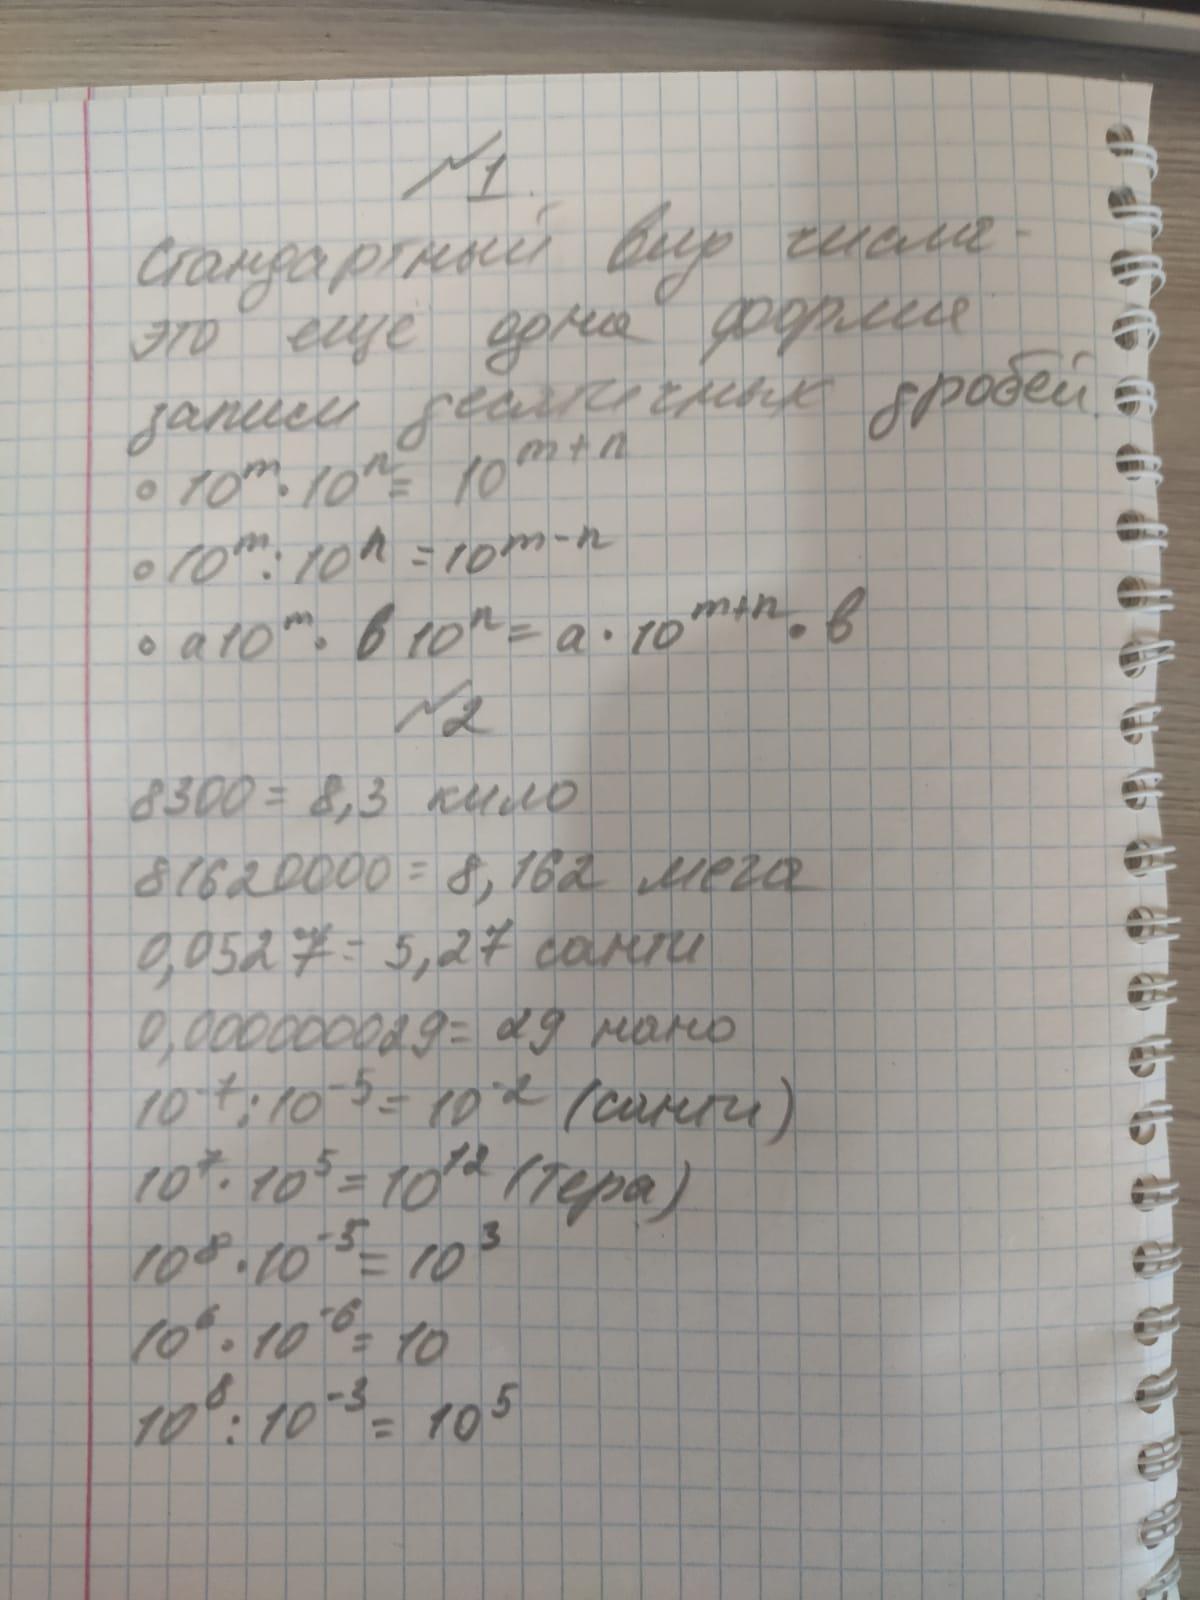 №1.
Стандартный вид числа -
это еще одна форма
записи десятичных дробей.
• 10^m · 10^n = 10^m+n
• 10^m : 10^n = 10^m-n
• a10^m · в 10^n = a · 10^m+n · в
№2
8300 = 8,3 кило
81620000 = 8,162 мега
0,0527 = 5,27 санти
0,000000029 = 29 нано
10^-7 : 10^-5 = 10^-2 (санти)
10^7 · 10^5 = 10^12 (Тера)
10^8 · 10^-5 = 10^3
10^6 · 10^-6 = 10
10^8 : 10^-3 = 10^5